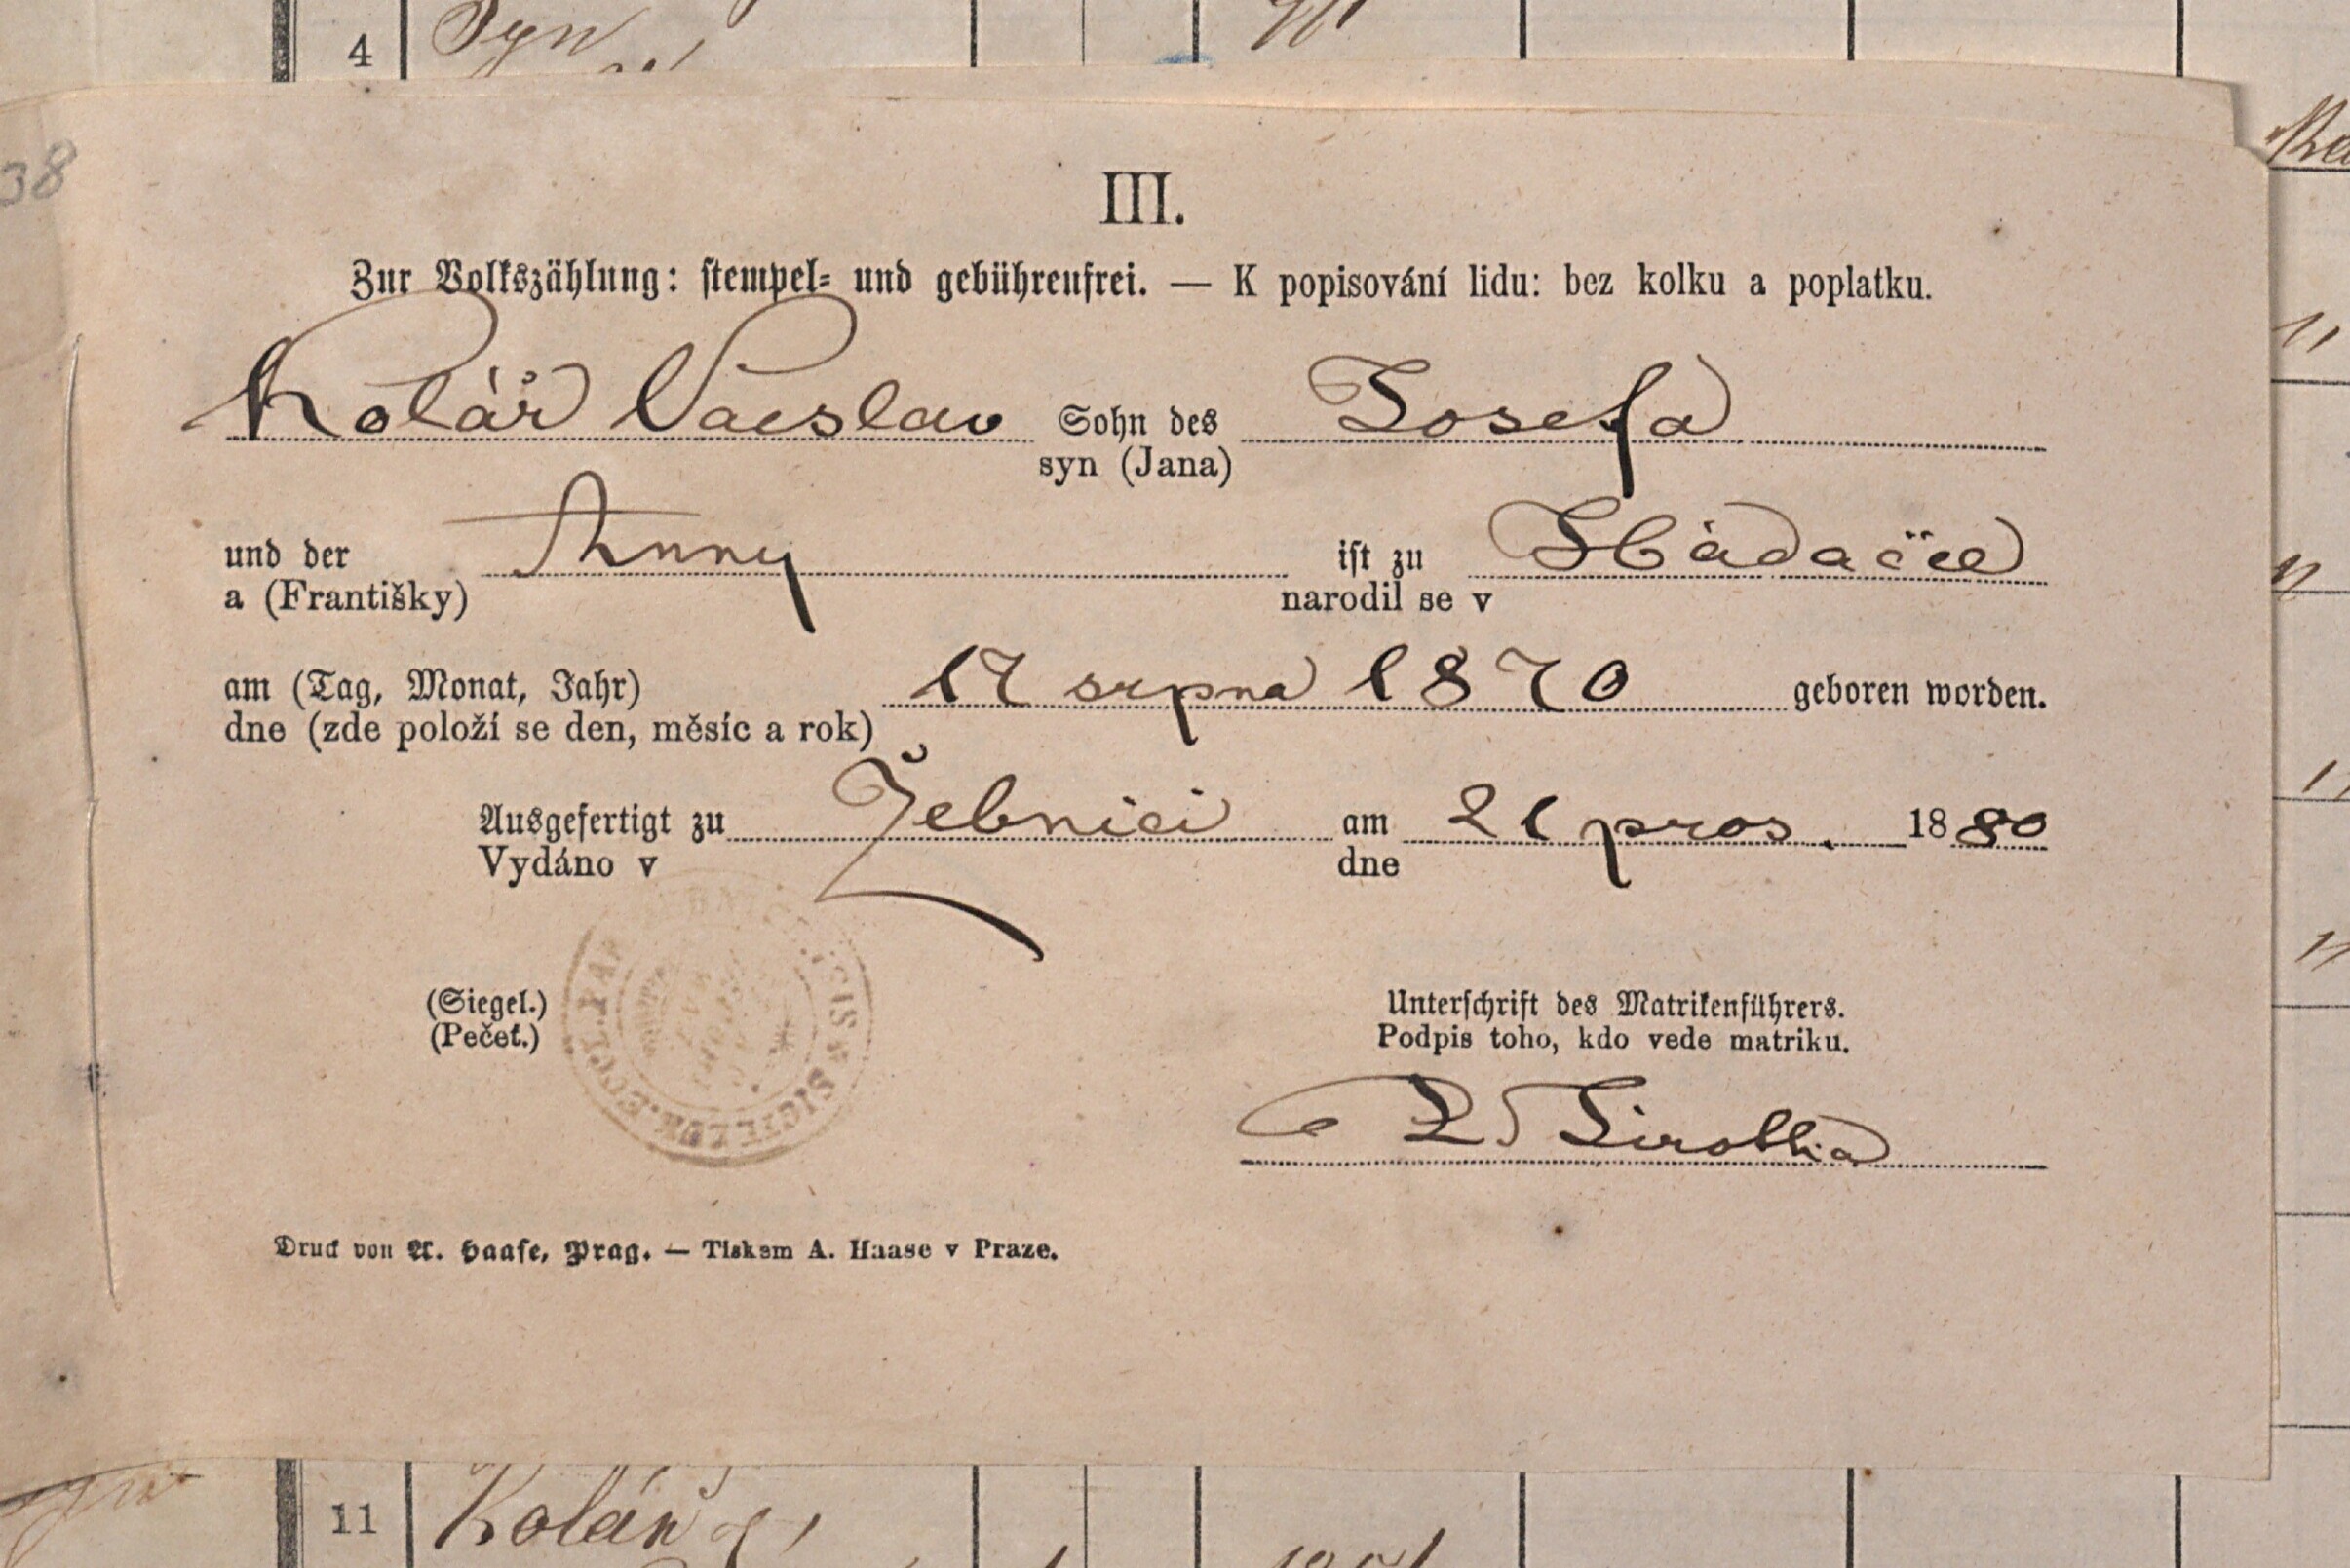 4 Syn
38
III.
Zur Volkszählung: stempel- und gebührenfrei. — K popisování lidu: bez kolku a poplatku.
Kolář Vácslav Sohn des Josefa
syn (Jana)
und der Anny ist zu Sbádačce
a (Františky) narodil se v
am (Tag, Monat, Jahr) 17 srpna 1870 geboren worden.
dne (zde položí se den, měsíc a rok)
Ausgefertigt zu Žebnici am 21 pros. 1880
Vydáno v dne
(Siegel.) Unterschrift des Matrikenführers.
(Pečeť.) Podpis toho, kdo vede matriku.
Sirotka
Druck von A. Haase, Prag. — Tiskem A. Haase v Praze.
11 Kolář